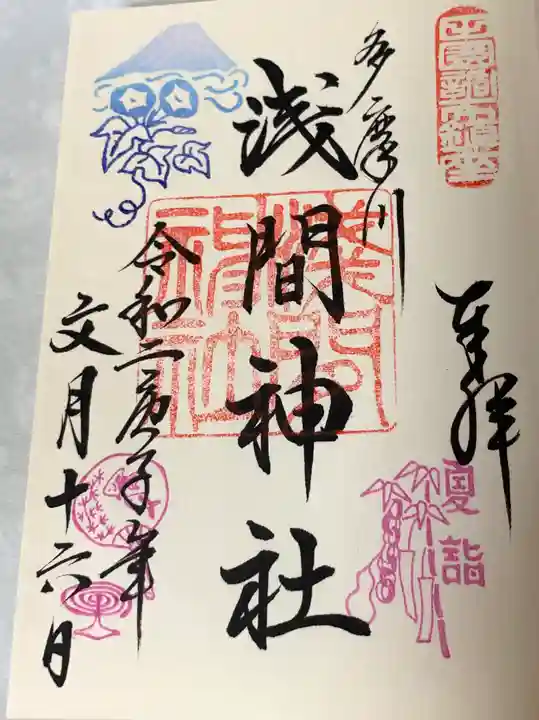 奉拝
夏詣
多摩川
浅間神社
浅間神社
令和二庚子年
文月十六日